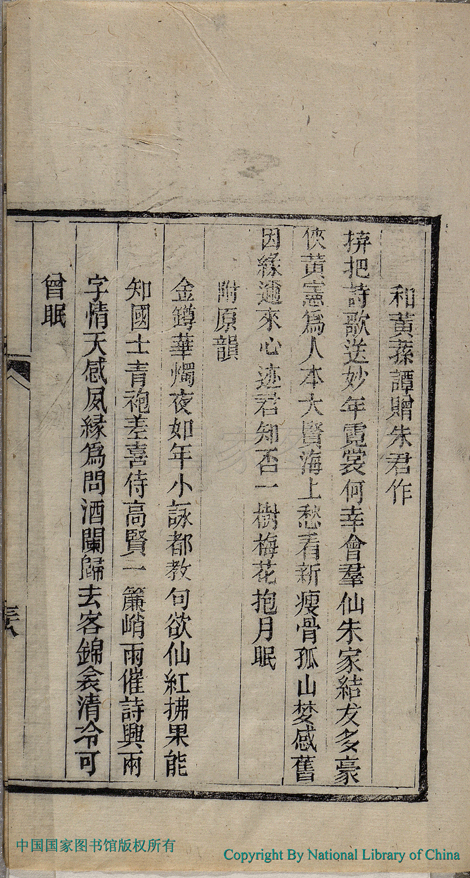 和黃蓀譚贈朱君作
拚把詩歌送妙年霓裳何幸會羣仙朱家結友多豪
俠黃憲爲人本大賢海上愁看新瘦骨孤山夢感舊
因緣邇來心迹君知否一樹梅花抱月眠
附原韻
金鐏華燭夜如年小詠都教句欲仙紅拂果能
知國士青袍差喜侍高賢一簾峭雨催詩興兩
字情天感夙緣爲問酒闌歸去客錦衾清冷可
曾眠
中国国家图书馆版权所有
Copyright By National Library of China